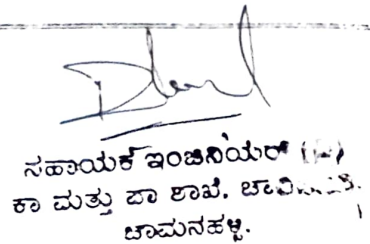 ಸಹಾಯಕ ಇಂಜಿನಿಯರ್
ಕಾ ಮತ್ತು ಪಾ ಶಾಖೆ.
ಚಾಮನಹಳ್ಳಿ.